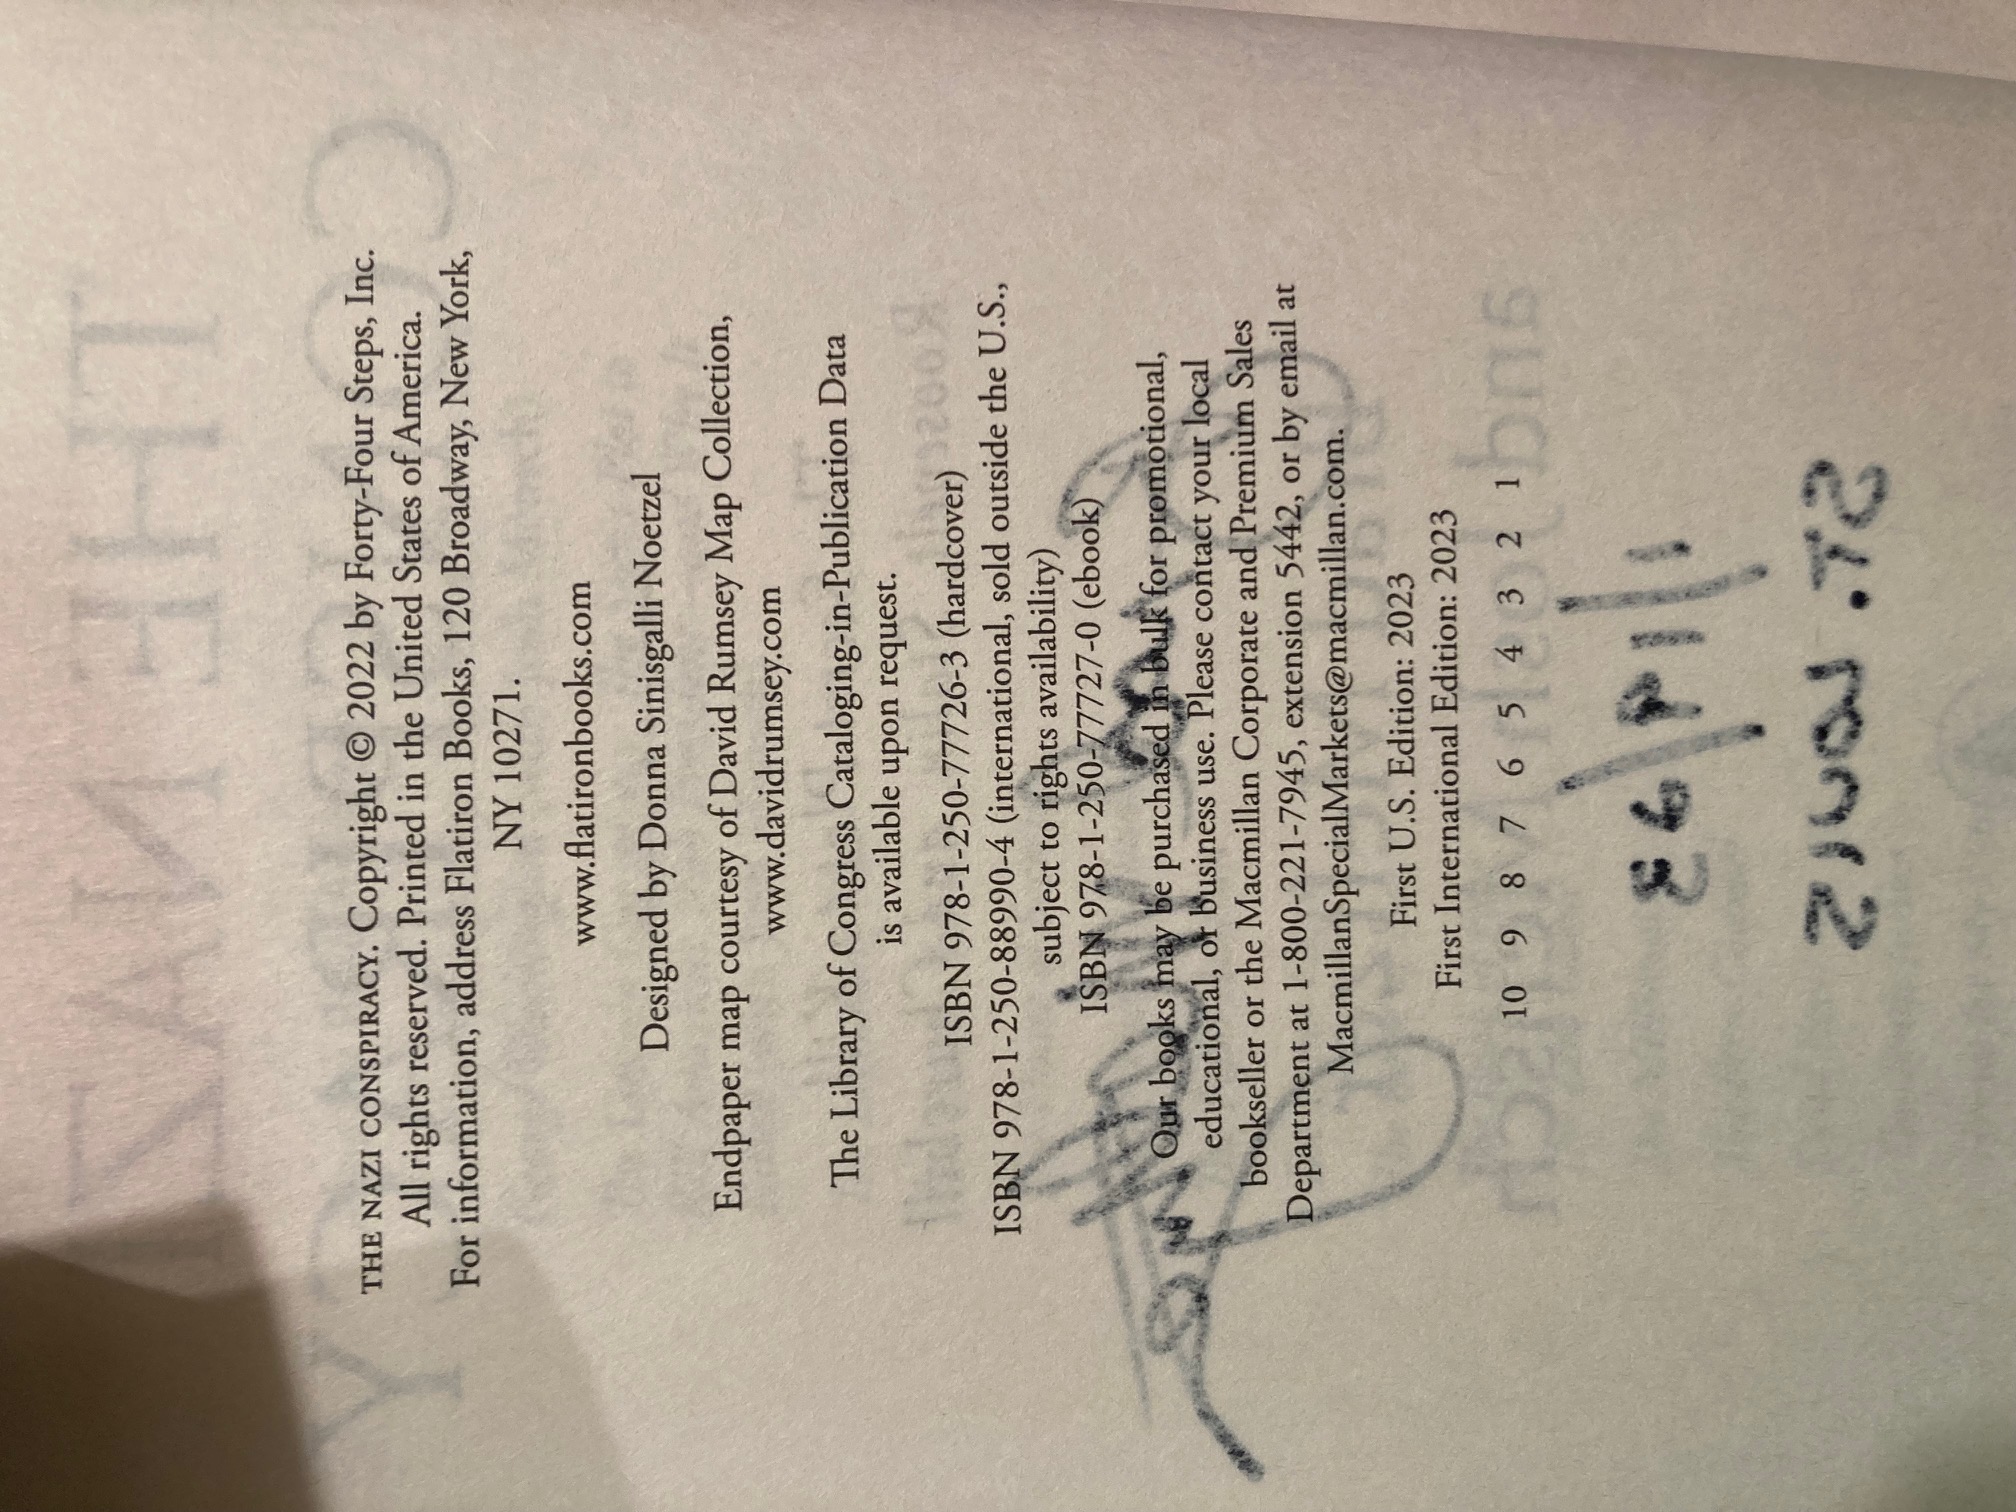 THE NAZI CONSPIRACY. Copyright © 2022 by Forty-Four Steps, Inc.
All rights reserved. Printed in the United States of America.
For information, address Flatiron Books, 120 Broadway, New York,
NY 10271.
www.flatironbooks.com
Designed by Donna Sinisgalli Noetzel
Endpaper map courtesy of David Rumsey Map Collection,
www.davidrumsey.com
The Library of Congress Cataloging-in-Publication Data
is available upon request.
ISBN 978-1-250-77726-3 (hardcover)
ISBN 978-1-250-88990-4 (international, sold outside the U.S.,
subject to rights availability)
ISBN 978-1-250-77727-0 (ebook)
Our books may be purchased in bulk for promotional,
educational, or business use. Please contact your local
bookseller or the Macmillan Corporate and Premium Sales
Department at 1-800-221-7945, extension 5442, or by email at
MacmillanSpecialMarkets@macmillan.com.
First U.S. Edition: 2023
First International Edition: 2023
10 9 8 7 6 5 4 3 2 1
ST. LOUIS